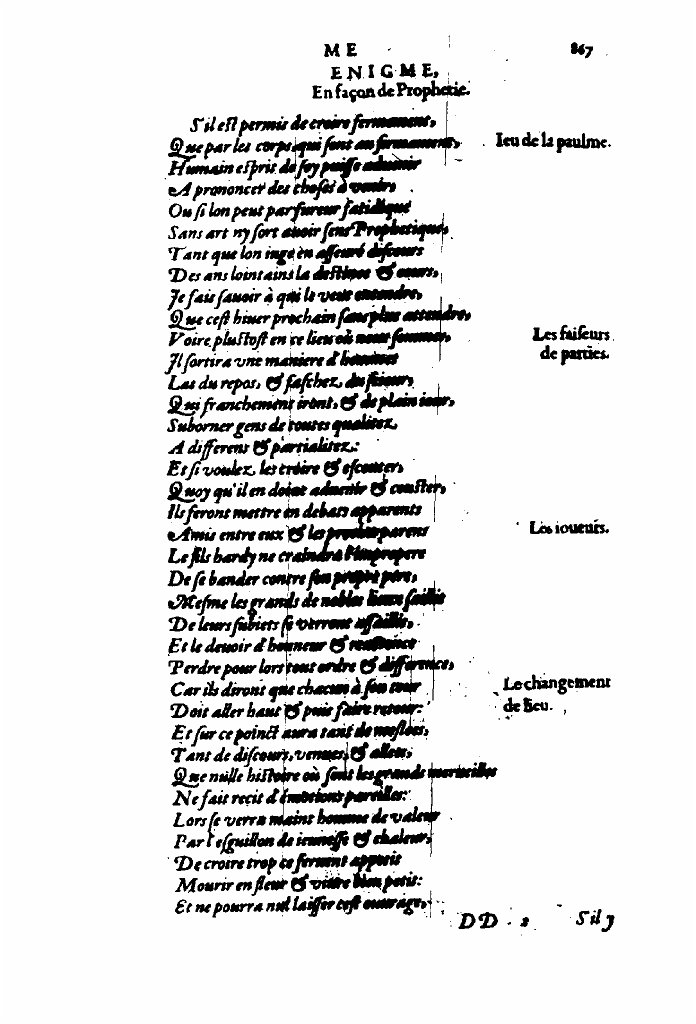 ME 867
ENIGME,
En façon de Prophetie.
S'il est permis de croire fermement,
Que par les corps qui sont au firmament, Ieu de la paulme.
Humain esprit de soy puisse aduenir
A prononcer des choses à venir,
Ou si lon peut par fureur fatidique
Sans art ny sort auoir sens Prophetique,
Tant que lon iuge en asseuré discours
Des ans lointains la destinee & cours,
Je fais sauoir à qui le veut entendre,
Que cest hiuer prochain sans plus attendre,
Voire plustost en ce lieu où nous sommes, Les faiseurs
Jl sortira vne maniere d'hommes de parties.
Las du repos, & faschez du seiour,
Qui franchement iront, & de plain iour,
Suborner gens de toutes qualitez,
A differens & partialitez:
Et si voulez les croire & escouter,
Quoy qu'il en doiue aduenir & couster,
Ils feront mettre en debats apparents
Amis entre eux & les proches parens Les ioueurs.
Le fils hardy ne craindra l'impropere
De se bander contre son propre pere,
Mesme les grands de nobles lieux saillis
De leurs subiets se verront assaillis,
Et le deuoir d'honneur & reuerence
Perdre pour lors tout ordre & difference,
Car ils diront que chacun à son tour Le changement
Doit aller haut & puis faire retour: de lieu.
Et sur ce poinct aura tant de meslees,
Tant de discours, venues, & allees,
Que nulle histoire où sont les grands merueilles
Ne fait recit d'émotions pareilles:
Lors se verra maint homme de valeur
Par l'esguillon de ieunesse & chaleur,
De croire trop ce feruent appetit
Mourir en fleur & viure bien petit:
Et ne pourra nul laisser cest ouurage,
DD. 2 S'il y